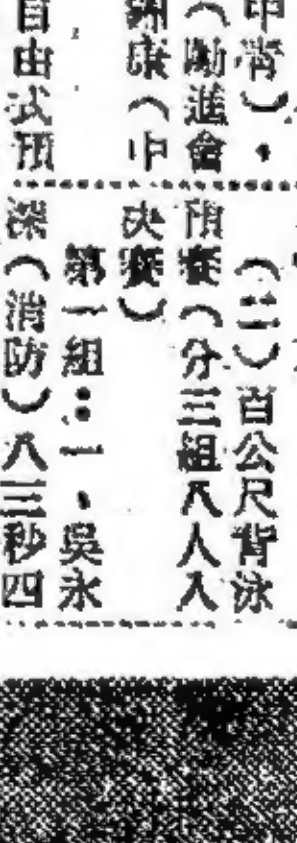 申背）、
（勵進會
錦康（中
自由式預
（二）百公尺背泳
預賽（分三組八人入
決賽）
第一組：一、吳永
深（消防）八三秒四